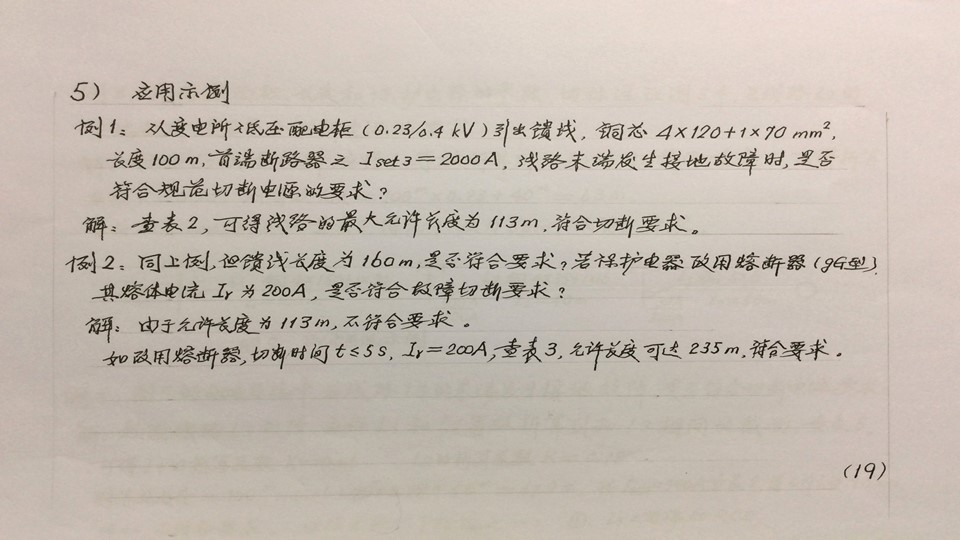 5) 应用示例
例1：从变电所低压配电柜(0.23/0.4 kV)引出馈线，铜芯 4×120+1×70 mm²，
长度100m，首端断路器之 Iset3=2000A，线路末端发生接地故障时，是否
符合规范切断电源的要求？
解：查表2，可得线路的最大允许长度为113m，符合切断要求。
例2：同上例，但馈线长度为160m，是否符合要求？若保护电器改用熔断器(gG型)，
其熔体电流 Ir 为200A，是否符合故障切断要求？
解：由于允许长度为113m，不符合要求。
如改用熔断器，切断时间 t≤5s，Ir=200A，查表3，允许长度可达235m，符合要求。
(19)